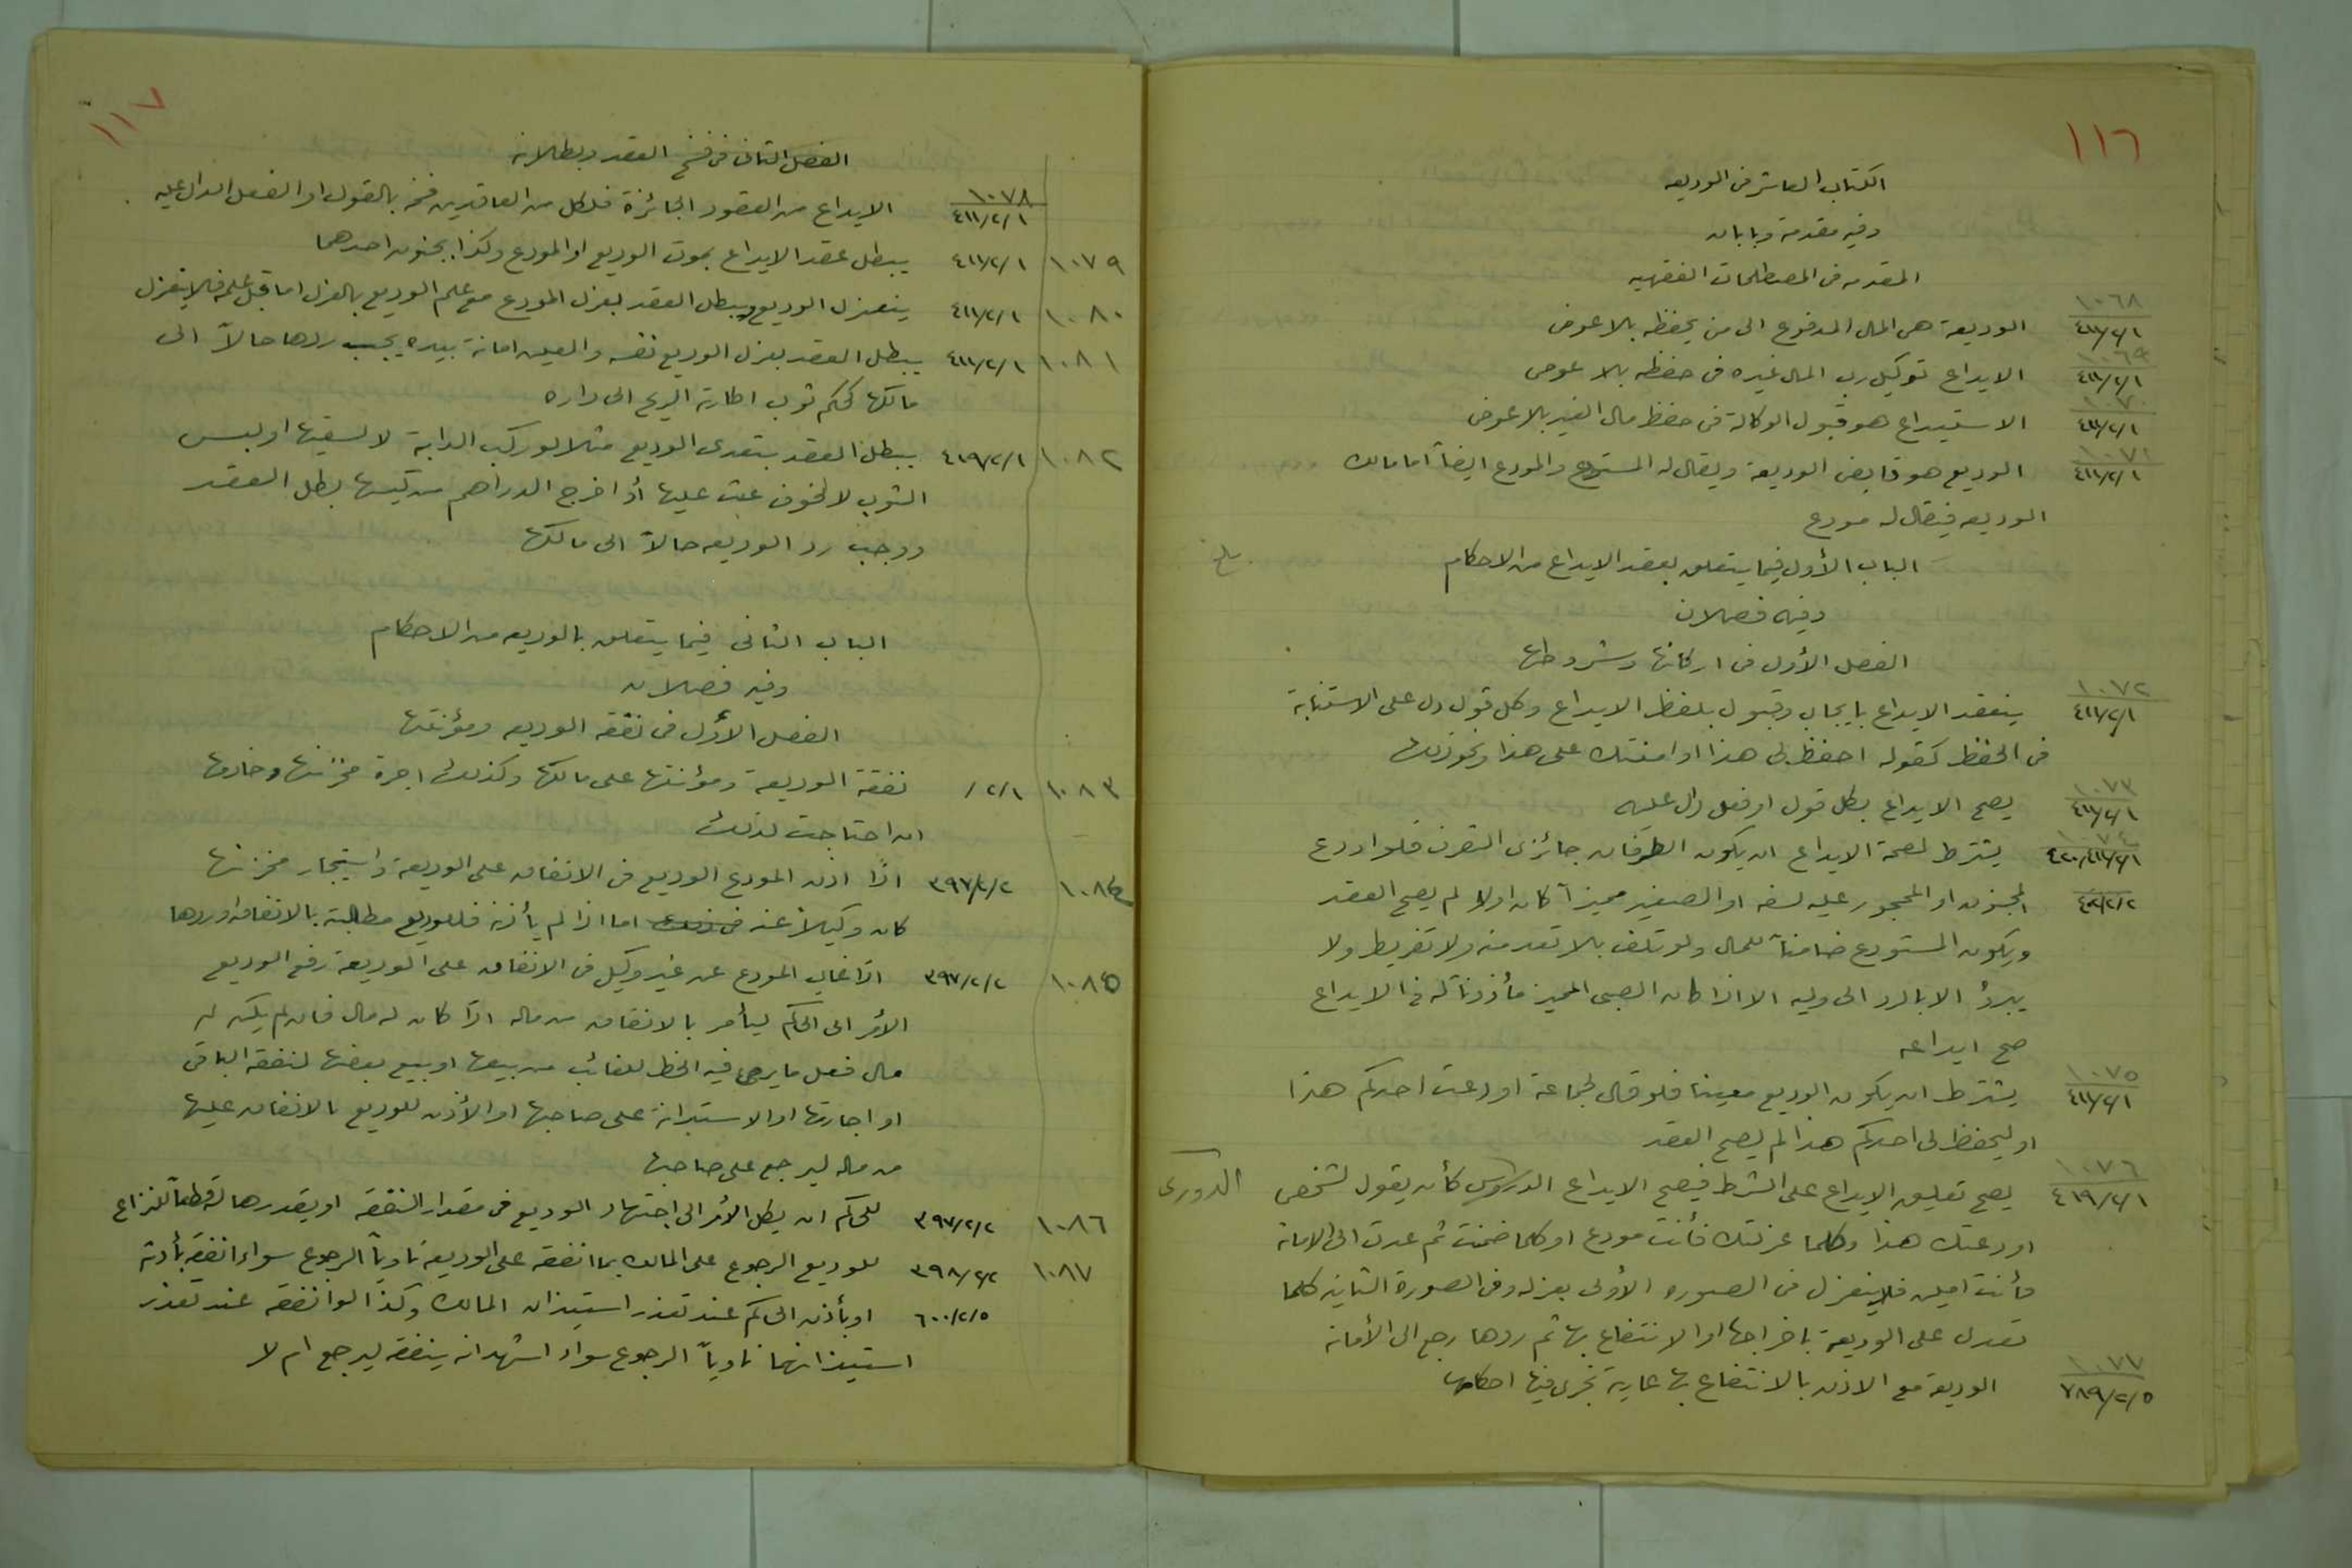 ١١٦
الكتاب العاشر في الوديعه
وفيه مقدمة وبابان
المقدمه في المصطلحات الفقهيه
١٠٦٨
٤١١/٢/١ الوديعة هي المال المدفوع الى من يحفظه بلا عوض
١٠٦٩
٤١١/٢/١ الايداع توكيل رب المال غيره في حفظه بلا عوض
١٠٧٠
٤١١/٢/١ الاستيداع هو قبول الوكالة في حفظ مال الغير بلا عوض
١٠٧١
٤١١/٢/١ الوديع هو قابض الوديعة ويقال له المستودع والمودع ايضاً اما مالك
الوديعه فيقال له مودع
الباب الأول فيما يتعلق بعقد الايداع من الاحكام
وفيه فصلان
الفصل الأول في اركانها وشروطها
١٠٧٢
٤١١/٢/١ ينعقد الايداع بايجاب وقبول بلفظ الايداع وكل قول دل على الاستنابة
في الحفظ كقوله احفظ لي هذا او امنتك على هذا ونحو ذلك
١٠٧٣
٤١١/٢/١ يصح الايداع بكل قول او فعل دال عليه
١٠٧٤
٤٢٠،٤١١/٢/١ يشترط لصحة الايداع ان يكون الطرفان جائزى التصرف فلو اودع
٤٠٢/٢/٢ المجنون او المحجور عليه لسفه او الصغير مميزاً كان اولا لم يصح العقد
ويكون المستودع ضامناً للمال ولو تلف بلا تعد منه ولا تفريط ولا
يبرؤ الا بالرد الى وليه الا اذا كان الصبى المميز مأذوناً له في الايداع
صح ايداعه
١٠٧٥
٤١١/٢/١ يشترط ان يكون الوديع معينا فلو قال لجماعة اودعت احدكم هذا
او ليحفظ لى احدكم هذا لم يصح العقد
١٠٧٦
٤١٩/٢/١ يصح تعليق الايداع على الشرط فيصح الايداع كأن يقول لشخص الدورى
اودعتك هذا وكلما عزلتك فأنت مودع او كلما ضمنت ثم عدت الى الامانة
فأنت امين فلا ينعزل في الصوره الأولى بعزله وفى الصورة الثانيه كلما
تعدى على الوديعة باخراجها او الانتفاع بها ثم ردها رجع الى الأمانة
١٠٧٧
٧٨٩/٢/٥ الوديعة مع الاذن بالانتفاع بها عارية تجرى فيها احكامها
١١٧
الفصل الثانى فى فسخ العقد وبطلانه
١٠٧٨
٤١١/٢/١ الايداع من العقود الجائزة فلكل من العاقدين فسخه بالقول او الفعل الدال عليه
١٠٧٩ ٤١١/٢/١ يبطل عقد الايداع بموت الوديع او المودع وكذا بجنون احدهما
١٠٨٠ ٤١١/٢/١ ينعزل الوديع ويبطل العقد بعزل المودع مع علم الوديع بالعزل اما قبل علمه فلا ينعزل
١٠٨١ ٤١١/٢/١ يبطل العقد بعزل الوديع نفسه والعين امانة بيده يجب ردها حالاً الى
مالكها كحكم ثوب اطارته الريح الى داره
١٠٨٢ ٤١٩/٢/١ يبطل العقد بتعدى الوديع مثلا لو ركب الدابة لا لسقيها او لبس
الثوب لا لخوف عث عليها أو اخرج الدراهم من كيسها بطل العقد
ووجب رد الوديعه حالاً الى مالكها
الباب الثانى فيما يتعلق بالوديعه من الاحكام
وفيه فصلان
الفصل الأول فى نفقة الوديعه ومؤنتها
١٠٨٣ /٢/١ نفقة الوديعة ومؤنتها على مالكها وكذلك اجرة مخزنها وخادمها
ان احتاجت لذلك
١٠٨٤ ٣٩٧/٢/٢ اذا اذن المودع الوديع فى الانفاق على الوديعة واستيجار مخزنها
كان وكيلاً عنه فى ذلك اما اذا لم يأذنه فللوديع مطالبته بالانفاق او ردها
١٠٨٥ ٣٩٧/٢/٢ اذا غاب المودع عن غير وكيل فى الانفاق على الوديعة رفع الوديع
الأمر الى الحاكم ليأمر بالانفاق من ماله اذا كان له مال فان لم يكن له
مال فعل ما يرى فيه الحظ للغائب من بيعها او بيع بعضها لنفقة الباقى
او اجارتها او الاستدانة على صاحبها او الأذن للوديع بالانفاق عليها
من ماله ليرجع على صاحبها
١٠٨٦ ٣٩٧/٢/٢ للحاكم ان يكل الأمر الى اجتهاد الوديع فى مقدار النفقة او يقدرها له قطعاً للنزاع
١٠٨٧ ٣٩٨/٢/٢ للوديع الرجوع على المالك بما انفقه على الوديعة ناوياً الرجوع سواء انفقه بأذنه
٦٠٠/٢/٥ او بأذن الحاكم عند تعذر استيذان المالك وكذا لو انفقه عند تعذر
استيذانهما ناوياً الرجوع سواء اشهد انه ينفقه ليرجع ام لا